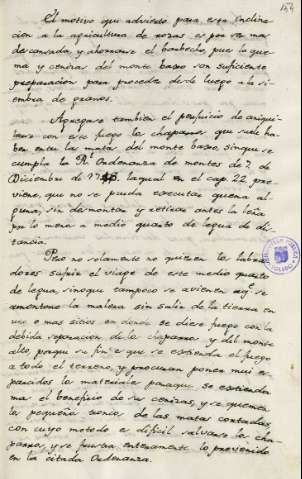 154
El motivo que advierto para esta inclina-
cion a la agricultura de rozas es por ser mas
descansada, y ahorrarse el barbecho, pues la que-
ma y cenizas del monte baxo son suficiente
preparacion para proceder desde luego a la si-
embra de granos.
Agregase tambien el perjuicio de aniqui-
larse con este fuego los chaparros que suele ha-
ber entre las matas del monte baxo, sin que se
cumpla la Rl. Ordenanza de montes de 7 de
Diciembre de 1748, la qual en el cap. 22 pre-
viene, que no se pueda executar quema al-
guna, sin desmontar y retirar antes la leña
por lo menos a medio quarto de legua de dis-
tancia.
Pero no solamente no quieren los labra-
dores sufrir el viage de este medio quarto
de legua, sino que tampoco se avienen a q.e se
amontone la maleza sin salir de la tierra en
uno o mas sitios en donde se diese fuego con la
debida separacion de los chaparros y del monte
alto, porque su fin es que se extienda el fuego
a todo el terreno, y procuran poner mui es-
parcidos los materiales para que se extienda
mas el beneficio de sus cenizas, y se quemen
los pequeños troncos de las matas cortadas,
con cuyo metodo es dificil salvarse los cha-
parros, y se frustra enteramente lo prevenido
en la citada Ordenanza.